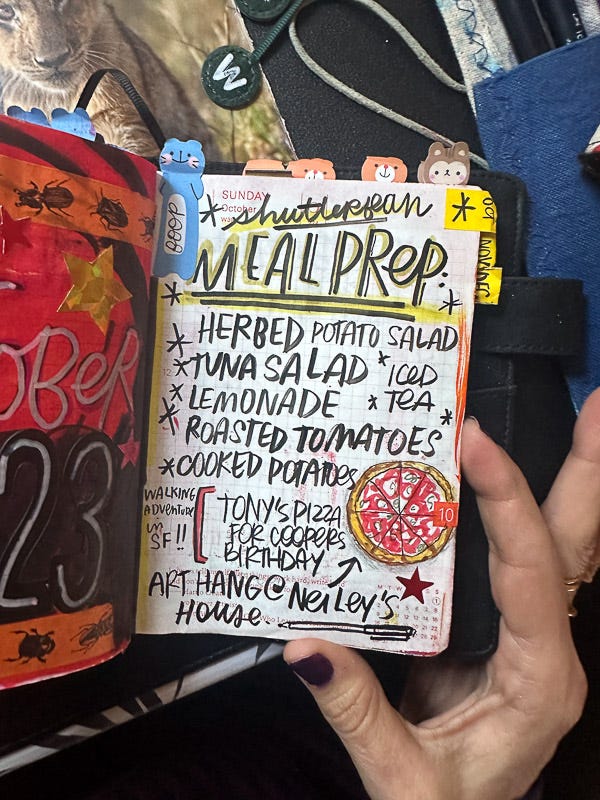 W
SUNDAY
October
BOOP
* shutterbean *
MEAL PREP:
OCT
NOVDEC
* HERBED POTATO SALAD
* TUNA SALAD
* ICED
* TEA *
* LEMONADE
* ROASTED TOMATOES
* COOKED POTATOES
WALKING
ADVENTURE
in
SF!!
TONY'S PIZZA
FOR COOPERS
BIRTHDAY
10
ART HANG@ NeiLey's
House
OBER
23